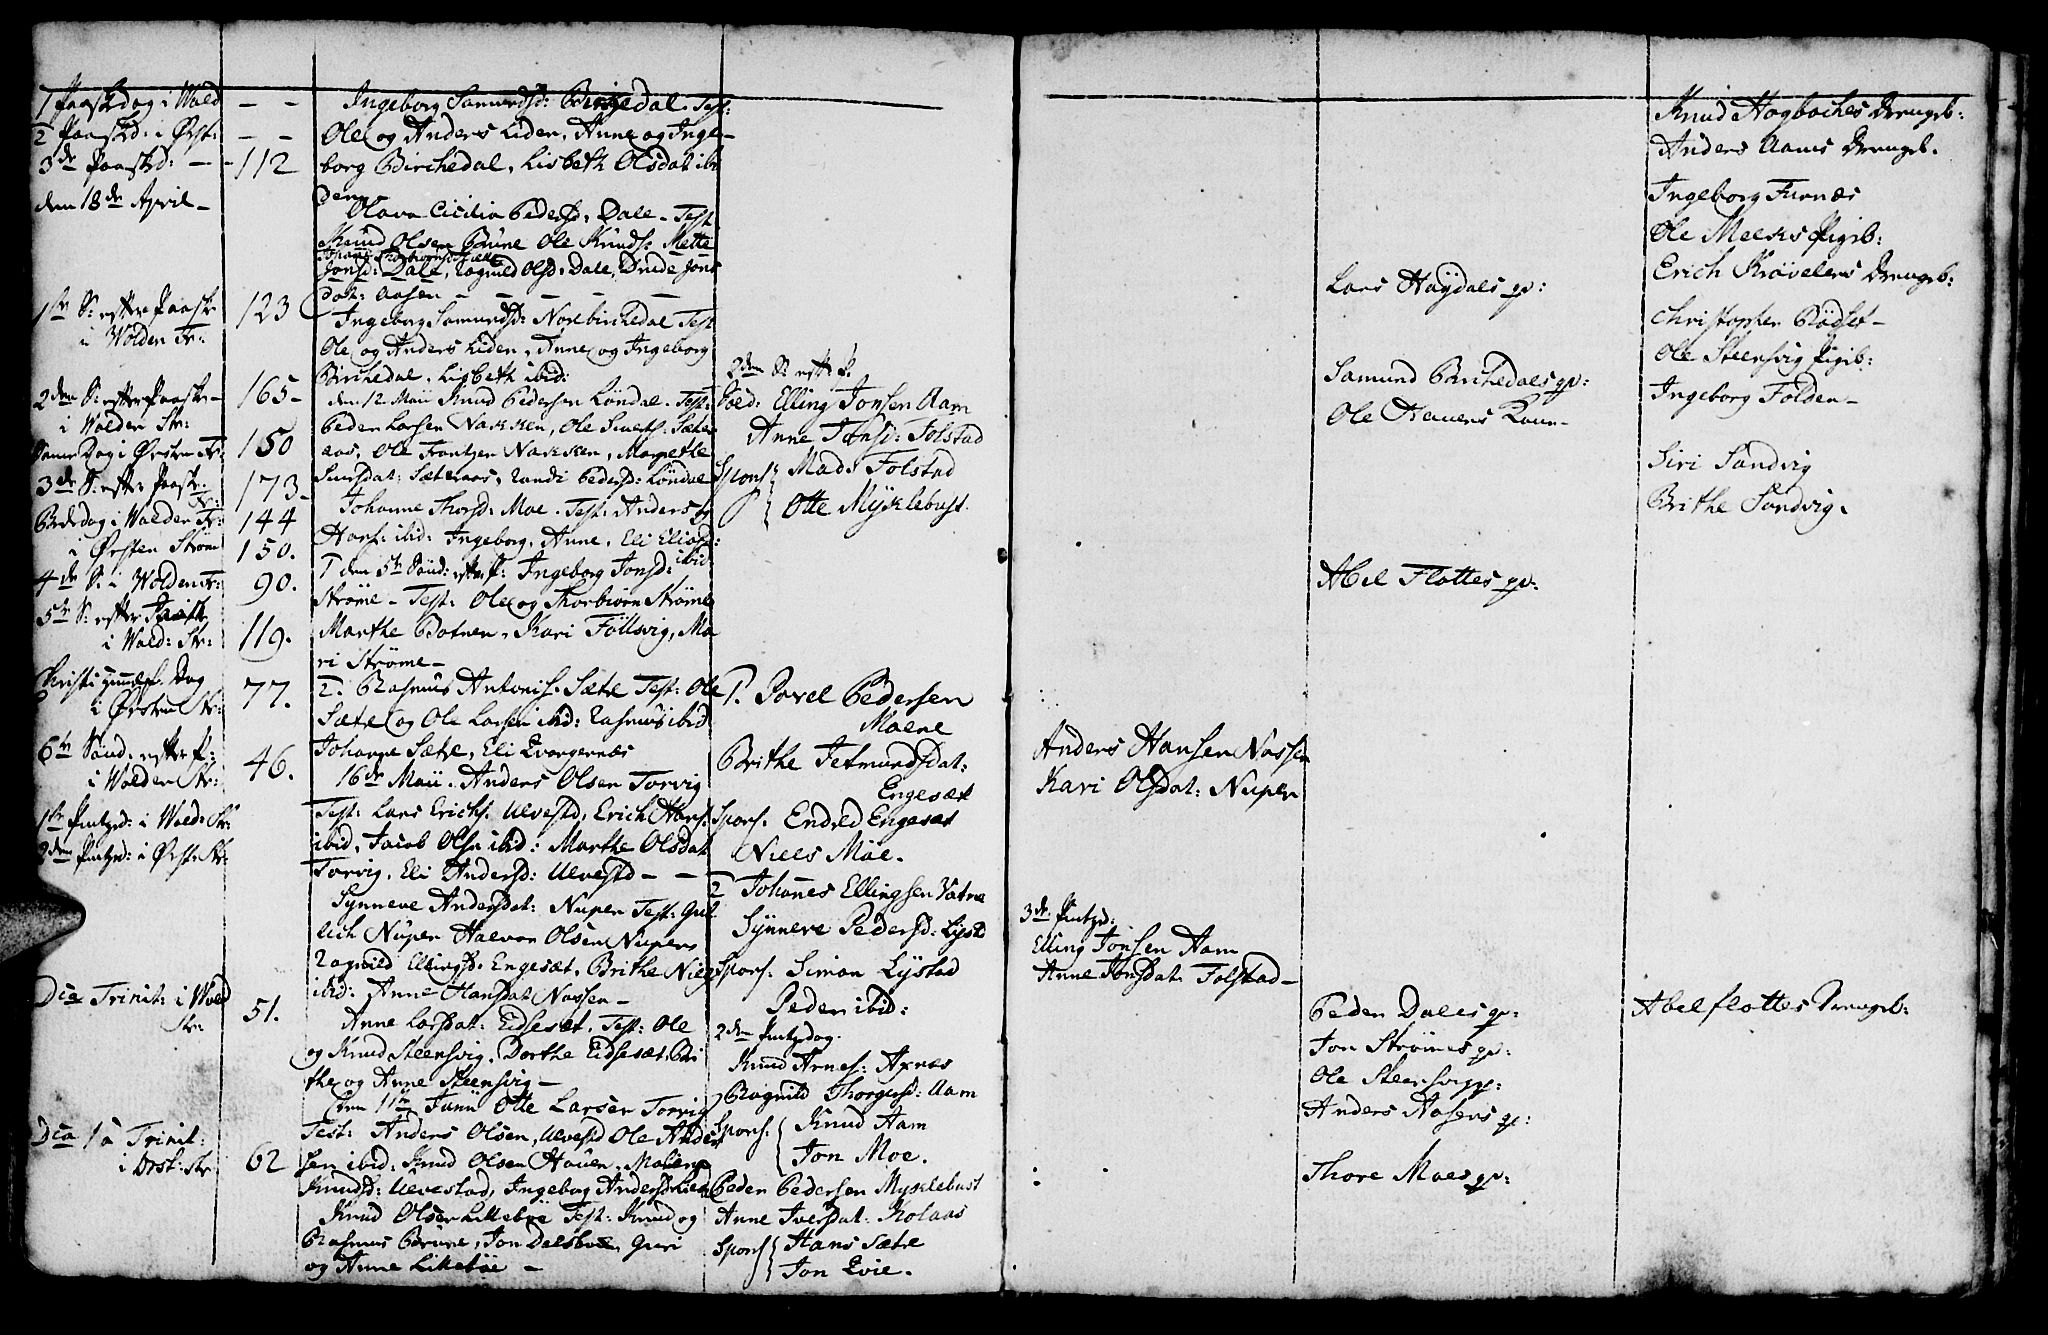 1 Paaskedag i Wold - -
2 Paaskd: i Ørst: - -
3de Paaskd: - - 112
den 18de April -
1ste S: efter Paaske 123
i Wolden Fr:
2den S: efter Paaske - 165 -
i Wolden Str:
Samme Dag i Ørsten Fr: 150
3de S: efter Paask: 173 -
Bededag i Wolden Fr: 144
i Ørsten Strøm 150.
4de S: i Wolden Fr: 90.
5te S: efter Paaske
i Wold: Str: 119.
Christi Himmelf. Dag
i Ørsten Str: 77.
6te Sønd: efter P:
i Wolden Str: 46.
1ste Pintzd: i Wold: Str:
2den Pintzd: i Ørst: Str:
Dca Trinit: i Wold
Str: 51.
Dca 1 à Trinit:
i Ørst: Str: 62
Ingeborg Samundsd: Birkedal. Test:
Ole og Anders Liden, Anne og Inge-
borg Birchedal, Lisbeth Olsdat ibi
dem
Olava Cicilia Pedersd, Dale - Test
Knud Olsen Brune Ole Knuds: Mette
Jonsd: Dale, Ragnild Olsd: Dale, Drude Jons
dat: Aasen - - - - -
Ingeborg Samundsd: Norebirchedal Test
Ole og Anders Liden, Anne og Ingeborg
Birchedal. Lisbeth ibid:
den 12 Maii Knud Pedersen Løndal. Test:
Peder Larsen Nakken, Ole Siverts: Sæter
aas, Ole Frantzen Nakken, Marethe
Siversdat: Sæteraas, Randi Pedersd: Løndal
Johanne Thorsd: Moe. Test: Anders og
Hans: ibid: Ingeborg, Anne, Eli Eliasd:
ibid
T den 5te Sønd: efter P: Ingeborg Jonsd:
Strøme - Test: Ole og Thorbiørn Strøme
Marthe Botnen, Kari Föllsvig, Ma
ri Strøme -
T. Rasmus Antonis. Sæte Test: Ole
Sæte og Ole Larsen ibid: Rasmus ibid
Johanne Sæte, Eli Evangernæs
16de Maii. Anders Olsen Torvig
Test: Lars Erichs. Ulvestd, Erich Hans:
ibid, Jacob Olsn ibid: Marthe Olsdat
Torvig, Eli Andersd: Ulvestd - -
Synneve Andersdat: Nupen Test: Gul
lich Nupen Halvor Olsen Nupen
Ragnild Ellingsd: Engesæt, Brithe Niels
ibid: Anne Hansdat Nossen -
Anne Larsdat: Eidsesæt, Test: Ole
og Knud Steensvig, Dorthe Eidsesæt, Bri
the og Anne Steensvig -
den 11te Junii Otte Larsen Torvig
Test: Anders Olsen, Ulvestd Ole Anders
sen ibid: Knud Olsen Hauen, Malene
Knudsd: Ulvestad, Ingeborg Andersdat
Knud Olsen Lillebøe Test: Knud og
Rasmus Brune, Jon Dalsboe, Guri
og Anne Lillebøe -
2den S: eft: P.
Elling Jonsen Aam
Anne Jonsd: Folstad
Spons { Mads Folstad
Otte Mÿklebust.
T. Povel Pedersen
Moene
Brithe Jetmundsdat:
Engesæt
Spons. Endred Engesæt
Niels Moe.
T Johanes Ellingsen Vatne
Synneve Pedersd: Lystd
Spons. Simon Lÿstad
Peder ibid:
2den Pintzdag.
Knud Arnes: Axnæs
Ragnild Thorgersd: Aam
Spons. { Knud Aam
Jon Moe.
Peder Pedersen Myklebust
Anne Iversdat: Kolaas
Spons { Hans Sæte
Jon Evie.
Anders Hansen Nossen
Kari Olsdat: Nupen
3de Pintzd:
Elling Jonsen Aam
Anne Jonsdat: Folstad -
Lars Høydals qv:
Samund Birchedals qv:
Ole Hauens Kone -
Abel Flottes qv:
Peder Dales qv:
Jon Strømes qv:
Ole Steensvigs qv:
Anders Aasens qv:
Thore Moes qv:
Knud Hogbaches Drengeb:
Anders Aams Drengeb.
Ingeborg Furnæs
Ole Melkes Pigeb:
Erich Krøvelens Drengeb:
Christopher Rødset -
Ole Steensvig Pigeb:
Ingeborg Folden -
Siri Sandvig
Brithe Sandvig.
Abel flottes Drengeb: